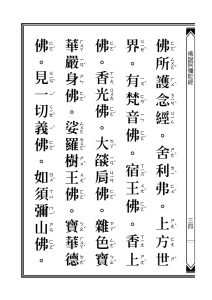 佛說阿彌陀經
三四
佛所護念經。舍利弗。上方世
界。有梵音佛。宿王佛。香上
佛。香光佛。大燄肩佛。雜色寶
華嚴身佛。娑羅樹王佛。寶華德
佛。見一切義佛。如須彌山佛。